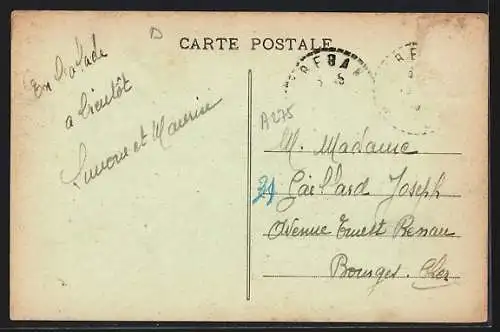 B
CARTE POSTALE
REBA
RE
En Balade
a bientôt
Simone et Maurice
A275
M. Madame
39
Gaillard Joseph
Avenue Ernest Renau
Bourges. Cher